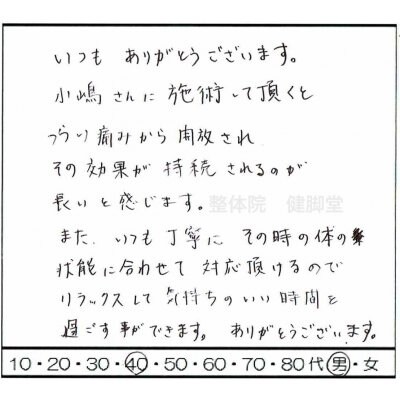 いつも ありがとうございます。
小嶋さんに 施術して頂くと
つらい痛みから 開放され
その効果が 持続されるのが
長いと感じます。
整体院 健脚堂
また、いつも丁寧に その時の体の
状態に合わせて 対応頂けるので
リラックスして 気持ちのいい時間を
過ごす事ができます。 ありがとうございます。
10・20・30・40・50・60・70・80代 男・女